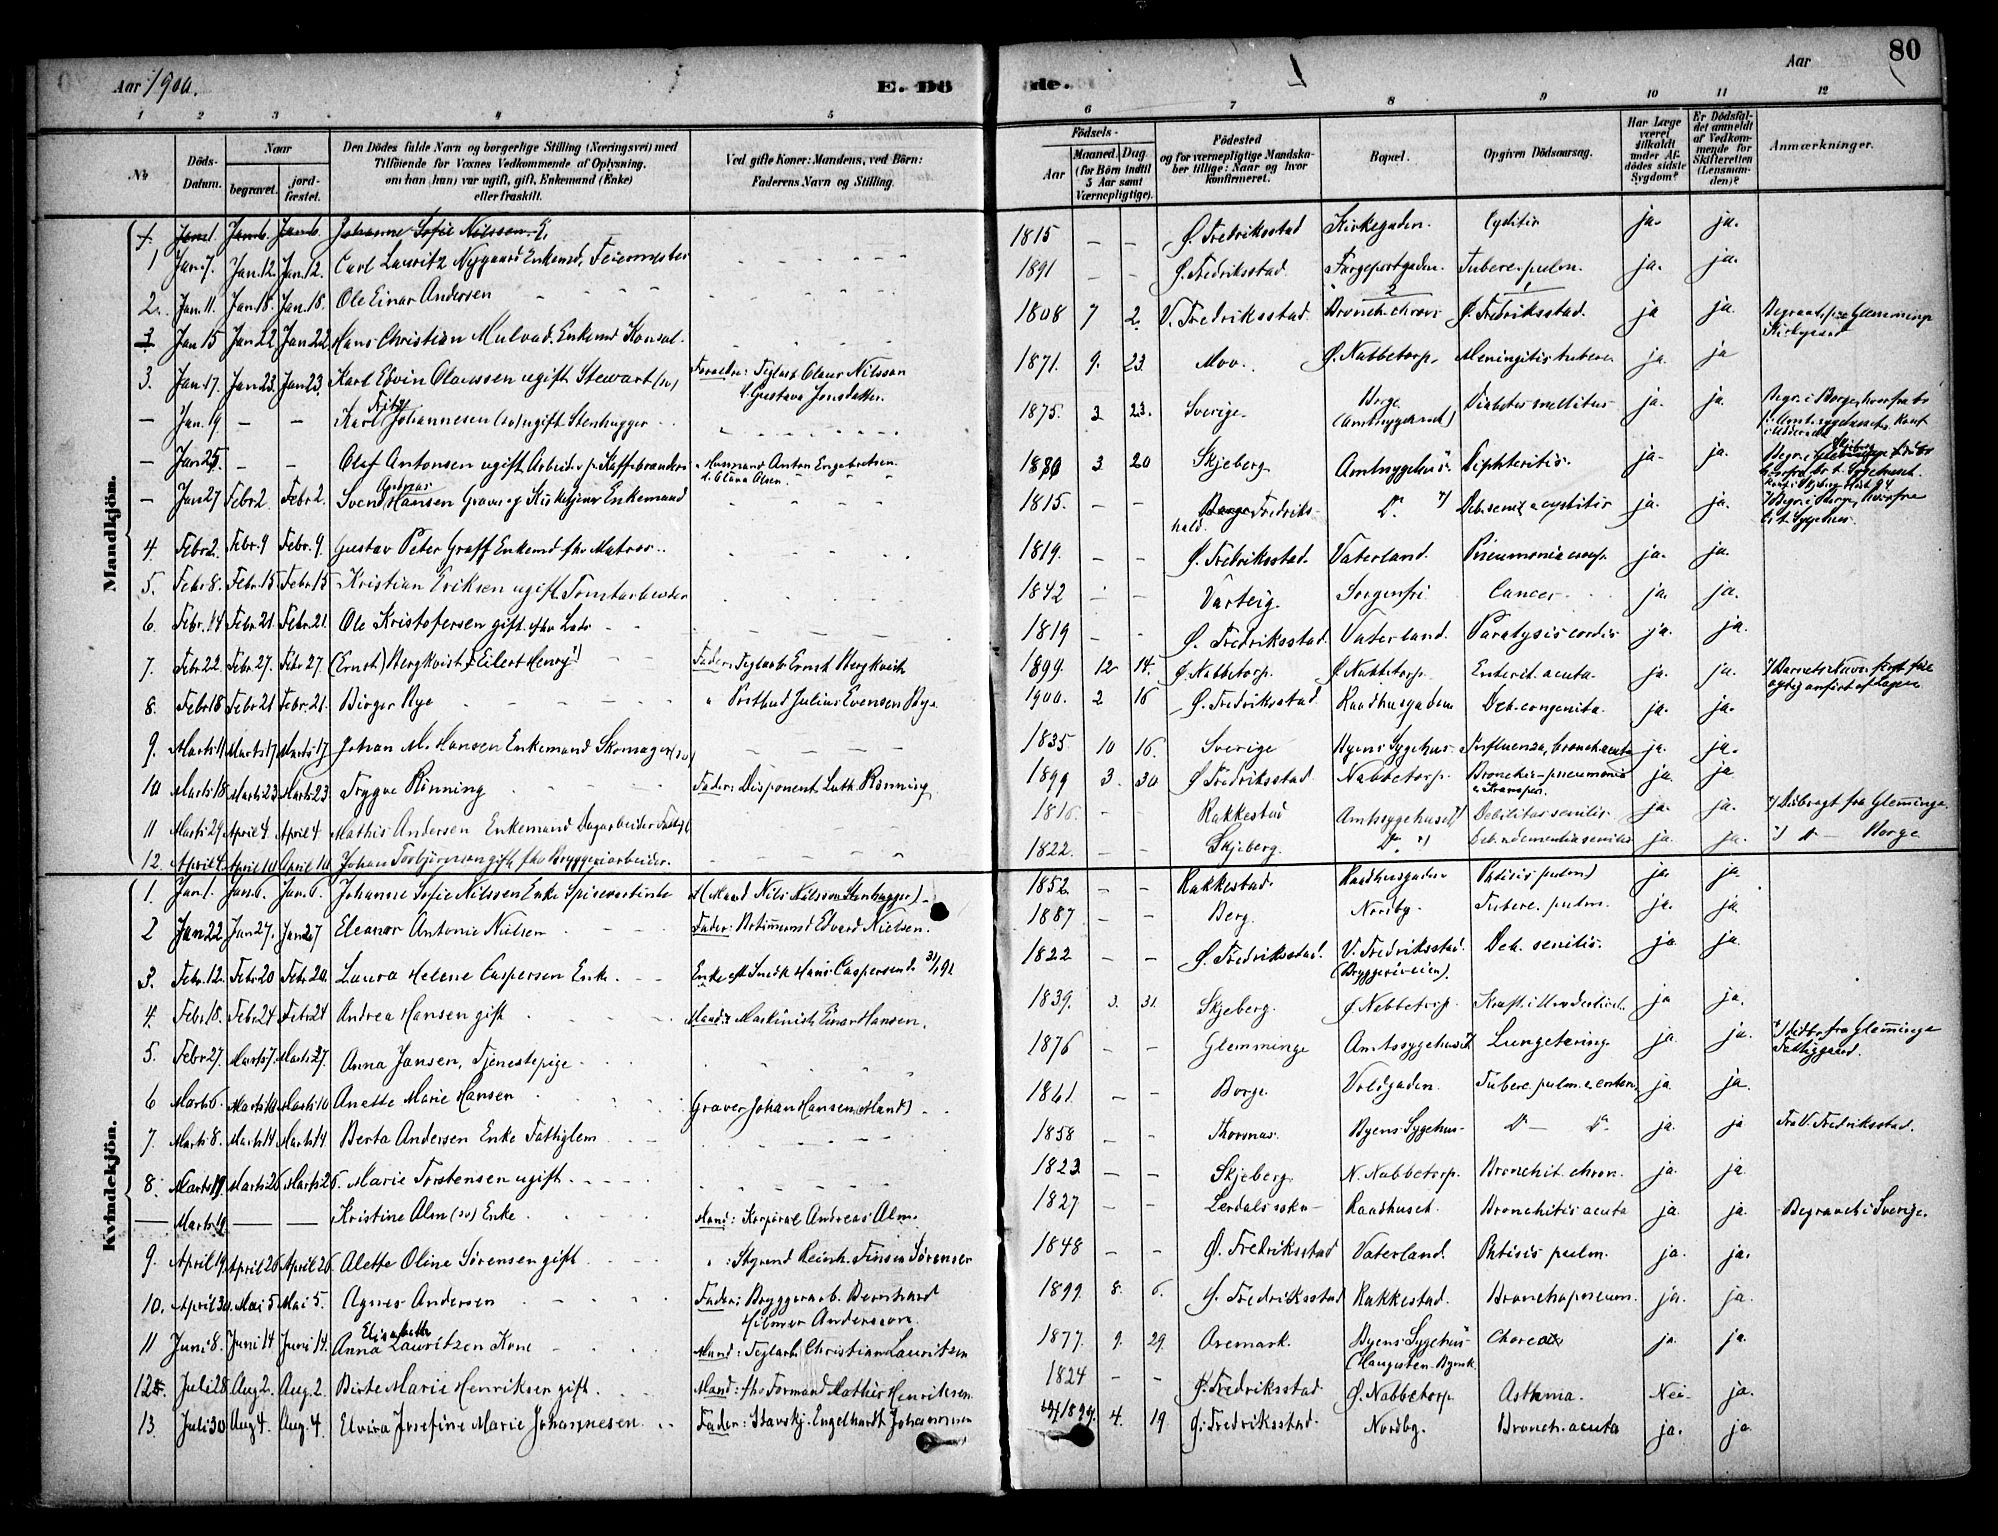 Aar 1900. E. Dö de. Aar 80
1 2 3 4 5 6 7 8 9 10 11 12
No. Döds-Datum. Naar begravet. jord-fæstet. Den Dödes fulde Navn og borgerlige Stilling (Næringsvei) med Tilföiende for Voxnes Vedkommende af Oplysning, om han (hun) var ugift, gift, Enkemand (Enke) eller fraskilt. Ved gifte Koner: Mandens, ved Börn: Faderens Navn og Stilling. Födsels- Aar Maaned. Dag. (for Börn indtil 5 Aar samt Værnepligtige). Födested og for værnepligtige Mandskaber tillige: Naar og hvor konfirmeret. Bopæl. Opgiven Dödsaarsag. Har Læge været tilkaldt under Afdödes sidste Sygdom? Er Dödsfaldet anmeldt af Vedkommende for Skifteretten (Lensmanden)? Anmærkninger.
Mandkjön.
1. Jan 1. Jan 6. Jan 6. Johanne Sofie Nilssen
1 Jan 7. Jan. 12. Jan. 12. Carl Lauritz Nygaard Enkemd, Feiermester 1815 – – Ø. Fredriksstad Kirkegaden. Cystitis ja. ja.
2. Jan. 11 Jan. 18. Jan. 18. Ole Einar Andersen 1891 – – Ø. Fredriksstad. Færgeportgaden. Tuberc. pulm. ja. ja.
3 Jan 15 Jan 22 Jan 22 Hans Christian Mulvad. Enkemd Konsul. 1808 7 2. V. Fredriksstad. Bronch. chron. Ø. Fredriksstad. ja ja. Begravet paa Glemminge Kirkegaard
3. Jan. 17. Jan. 23. Jan 23. Karl Edvin Olaussen ugift Stewart (sv) Foreldre: Teglarb Olaus Nilsson & Gustava Jonsdatter. 1871. 9. 23. Mov. Ø. Nabbetorp. Meningitis tuberc ja. ja
– Jan. 19 – – Karl Johannesen (sv) ugift Stenhugger 1875. 3 23. Sverige. Borge (Amtssygehuset) Diabetes mellitus ja. ja. Begr. i Borge, hvorfra
– Jan 25. – – Olaf Antonsen ugift Arbeider p. Kaffebrænderi Husmand Anton Engebretsen & Clava Olsen. 1880 3. 20 Skjeberg. Amtssygehus. Diphteritis. ja. ja. Begr. i Skjeberg
– Jan 27 Febr. 2 Febr. 2. Svend Andreas Hansen Graver og Kirketjener Enkemand 1815. – – Fredrikshald. Do. *) Deb. senil & cystitis ja. ja. *) Begr. i Borge, hvorfra
4. Febr 2. Febr. 9 Febr. 9. Gustav Peter Graff Enkemd fhv Matros 1819. – – Ø. Fredriksstad. Vaterland. Pneumonia croup. ja. ja.
5. Febr. 8. Febr. 15 Febr. 15 Kristian Eriksen ugift Tomtarbeider 1842 – – Varteig. Sorgenfri Cancer ja. ja.
6. Febr. 14 Febr. 21 Febr. 21. Ole Kristofersen gift fhv Lods 1819 – – Ø. Fredriksstad. Vaterland. Paralysis cordis ja. ja.
7. Febr 22 Febr. 27. Febr 27 (Ernst) Bergkvist Eilert Henry *) Fader: Teglarb. Ernst Bergkvist 1899. 12. 14. Ø. Nabbetorp. Ø. Nabbetorp. Enterit. acuta. ja. ja. *) Barnets Navn først
8. Febr 18 Febr 21 Febr. 21. Birger Bye " Postbud Julius Evensen Bye 1900. 2 16 Ø. Fredriksstad Raadhusgaden Deb. congenita. ja. ja.
9. Marts 11 Marts 17 Marts 17 Johan M. Hansen Enkemand Skomager (sv) 1835 10 16. Sverige Byens Sygehus. Influenza, bronch. acuta ja. ja.
10 Marts 18. Marts 23 Marts 23 Trygve Rönning Fader: Disponent Luth. Rönning. 1899 3. 30 Ø. Fredriksstad. Nabbetorp. Broncho-pneumonia ja. ja
11 Marts 29 April 4 April 4 Mathis Andersen Enkemand Dagarbeider 1816. Rakkestad Amtssygehuset *) Debilitas senilis ja. ja. *) Udbragt fra Glemminge
12. April 4 April 10 April 10 Johan Torbjörnsen gift fhv Bryggeriarbeider. 1822. – – Skjeberg. Do. *) Deb. & dementia senilis ja. ja. *) Do – Borge
Kvindekjön.
1. Jan. 1. Jan. 6. Jan. 6. Johanne Sofie Nilssen Enke Spisevertinde (Mand Nils Nilsson Stenhugger) 1852 – – Rakkestad. Raadhusgaden Phtisis pulm) ja. ja
2 Jan 22 Jan 27. Jan 27 Eleanor Antonie Nielsen Fader: Edvard Nielsen. 1887 – – Berg. Nordby. Tuberc. pulm. ja. ja.
3. Febr. 12. Febr 20 Febr. 20. Laura Helene Caspersen Enke Enke eft Snedk. Hans Caspersen d. 31/1 91 1822 – – Ø. Fredriksstad. V. Fredriksstad. (Bryggeriveien). Deb. senilis. ja ja.
4. Febr. 18. Febr 24 Febr 24 Andrea Hansen gift Mand: Maskinist Einar Hansen. 1839. 3. 31. Skjeberg. Ø Nabbetorp. ja ja.
5. Febr 27. Marts 7. Marts 27. Anna Jansen, Tjenestepige 1876 – – Glemminge Amtssygehuset *) Lungetæring ja ja. *) Udbr. fra Glemminge Fattiggaard.
6 Marts 6. Marts 10 Marts 10 Anette Marie Hansen Graver Johan Hansen (Mand) 1861. – – Borge. Voldgaden. Tuberc. pulm. & enter. ja ja.
7. Marts 8. Marts 14 Marts 14 Berta Andersen Enke Fattiglem 1858 – – Thorsnæs. Byens Sygehus Do – Do. ja. ja Fra V. Fredriksstad.
8. Marts 19. Marts 26 Marts 26. Marie Torstensen ugift 1823 – – Skjeberg. N. Nabbetorp. Bronchit. chron. ja. ja.
– Marts 19. – – Kristine Alm (sv) Enke Mand: Korporal Andreas Alm. 1827 – – Lerdals sokn Raadhuset. Bronchitis acuta ja ja. Begravet i Sverige.
9. April 19. April 26 April 26 Alette Oline Sörensen gift " : Styrmd Reinh. Tinsen Sörensen 1848 – – Ø. Fredriksstad Vaterland. Phtisis pulm. ja. ja.
10. April 30. Mai 5. Mai 5. Agnes Andersen Fader: Bryggeriarb. Bernhard Hilmer Anderssen. 1899. 8. 6. Ø. Fredriksstad Rakkestad. Bronchopneum. ja. ja.
11 Juni 8. Juni 14 Juni 14. Anna Elisabeth Lauritzen Kone Mand: Teglarb. Christian Lauritzen 1877. 9. 29. Aremark. Byens Sygehus Chorea ja. ja.
12. Juli 28 Aug 2. Aug. 2. Birte Marie Henriksen gift. Mand: fhv Formand Mathis Henriksen. 1824 – – Ø. Fredriksstad. Ø. Nabbetorp. Asthma. Nei ja.
13. Juli 30 Aug 4. Aug. 4. Elvira Josefine Marie Johannesen Fader: Engelhardt Johannesen 1899. 4. 19. Ø. Fredriksstad. Nordby. Bronch. acuta ja. ja